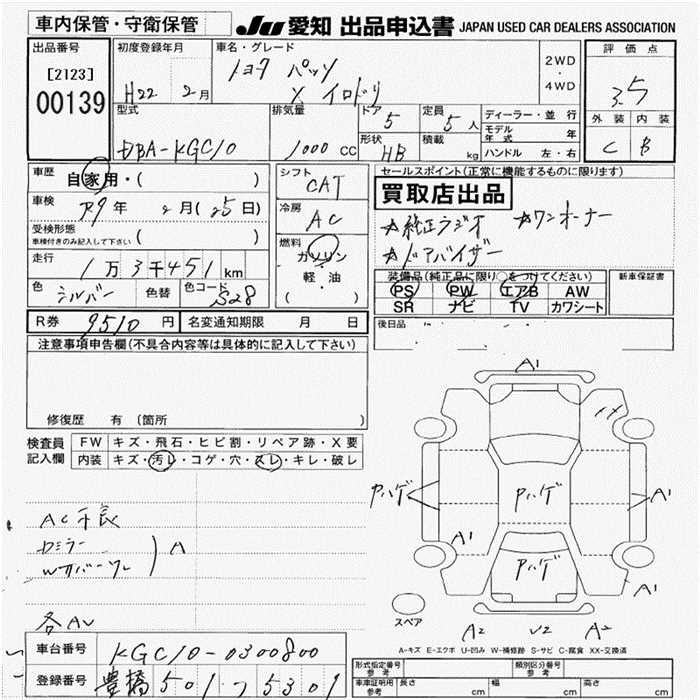 車内保管・守衛保管
JU 愛知 出品申込書 JAPAN USED CAR DEALERS ASSOCIATION
出品番号
[2123]
00139
初度登録年月
H22 2月
車名・グレード
トヨタ パッソ
X イロドリ
2WD
・
4WD
評価点
3.5
外装 内装
C B
型式
DBA-KGC10
排気量
1000 CC
ドア
5
定員
5人
形状
HB
積載
kg
ディーラー・並行
モデル年式 年
ハンドル 左・右
車歴
自家用・( )
車検
R9年 2月(25日)
受検形態
車検付きのみ記入して下さい ( )
走行
1万3千451km
色
シルバー
色替
色コード
S28
シフト
CAT
冷房
AC
燃料
ガソリン
軽・油
( )
セールスポイント(正常に機能するものに限ります)
買取店出品
☆純正ラジオ ☆ワンオーナー
☆ドアバイザー
装備品(純正品に限り○をつけてください)
PS PW エアB AW
SR ナビ TV カワシート
新車保証書
後日品
R券 9510円
名変通知期限 月 日
注意事項申告欄(不具合内容等は具体的に記入して下さい)
修復歴 有 (箇所 )
検査員記入欄
FW キズ・飛石・ヒビ割・リペア跡・X要
内装 キズ・汚レ・コゲ・穴・スレ・キレ・破レ
AC不良
Dミラー
Wカバー
A
各AU
A1
Pハゲ
Pハゲ
A1
A1
Pハゲ
A1
スペア
A2 U2 A2
A-キズ E-エクボ U-凹み W-補修跡 S-サビ C-腐食 XX-交換済
車台番号 KGC10-0300800
登録番号 豊橋 501 ち 5301
形式指定番号 参考
類別区分番号 参考
車庫証明用 参考
長さ cm
幅 cm
高さ cm